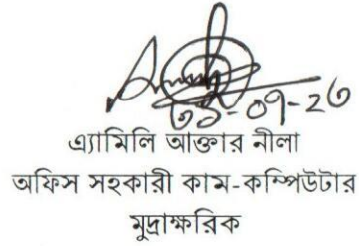 ০১-০৭-২৬
এ্যামিলি আক্তার নীলা
অফিস সহকারী কাম-কম্পিউটার
মুদ্রাক্ষরিক